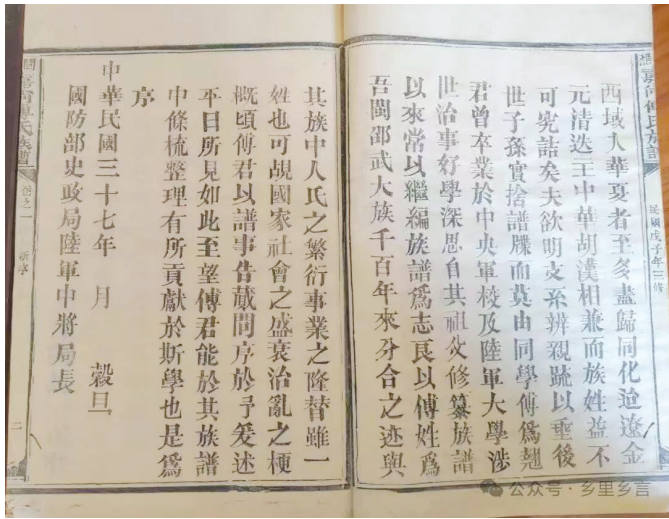 民國戊子年三修
西域入華夏者至多盡歸同化迨遼金
元清迭王中華胡漢相兼而族姓益不
可究詰矣夫欲明支系辨親疏以垂後
世子孫實捨譜牒而莫由同學傅爲翹
君曾卒業於中央軍校及陸軍大學涉
世治事好學深思自其祖父修纂族譜
以來常以繼編族譜爲志良以傅姓爲
吾閩邵武大族千百年來分合之迹與
其族中人氏之繁衍事業之隆替雖一
姓也可覘國家社會之盛衰治亂之梗
概頃傅君以譜事告蕆問序於予爰述
平日所見如此至望傅君能於其族譜
中條梳整理有所貢獻於斯學也是爲
序
中華民國三十七年 月 穀旦
國防部史政局陸軍中將局長
氏族譜
卷之一
新序
二
公众号·乡里乡言